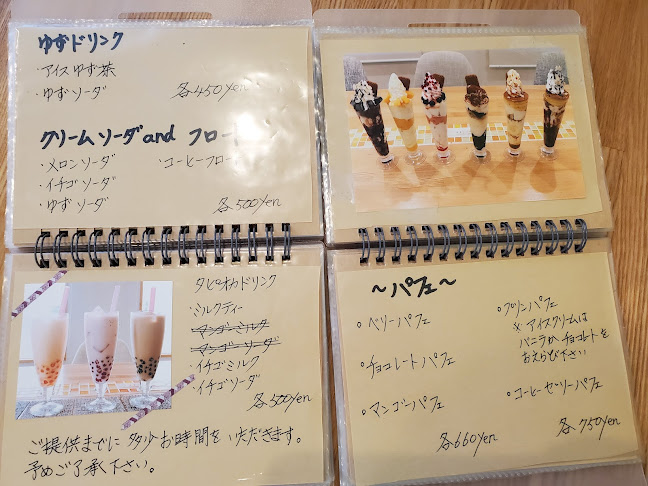 ゆずドリンク
・アイスゆず茶
・ゆずソーダ
各450yen
クリームソーダand フロー
・メロンソーダ
・コーヒーフロー
・イチゴソーダ
・ゆずソーダ
各500yen
タピオカドリンク
・ミルクティー
マンゴーミルク
マンゴーソーダ
・イチゴミルク
・イチゴソーダ
各500yen
ご提供までに多少お時間をいただきます。
予めご了承下さい。
～パフェ～
。ベリーパフェ
。チョコレートパフェ
。マンゴーパフェ
各660yen
。プリンパフェ
※アイスクリームは
バニラかチョコレートを
おえらび下さい
。コーヒーゼリーパフェ
各750yen